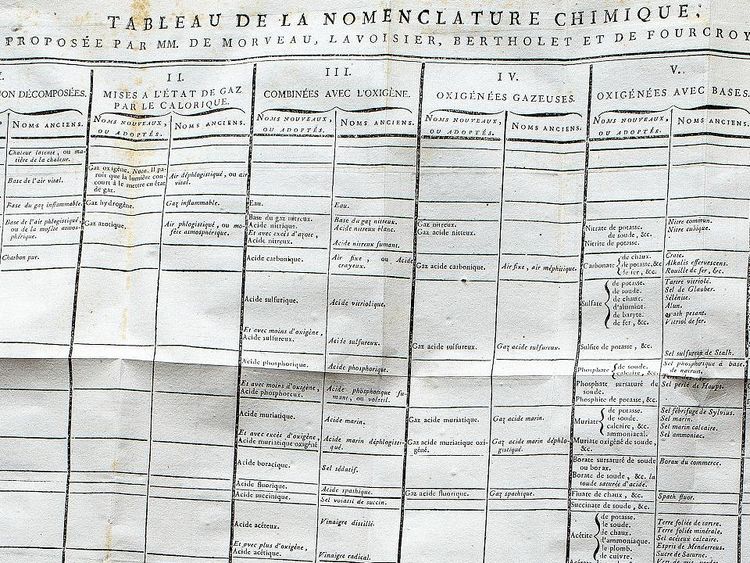 TABLEAU DE LA NOMENCLATURE CHIMIQUE,
PROPOSÉE PAR MM. DE MORVEAU, LAVOISIER, BERTHOLET ET DE FOURCROY
I.
NON DÉCOMPOSÉES.
NOMS ANCIENS.
Chaleur latente, ou matière de la chaleur.
Base de l'air vital.
Base du gaz inflammable.
Base de l'air phlogistiqué,
ou de la mofète atmosphérique.
Charbon pur.
II.
MISES A L'ÉTAT DE GAZ
PAR LE CALORIQUE.
NOMS NOUVEAUX,
OU ADOPTÉS.
NOMS ANCIENS.
Gaz oxigène. Nota. Il paroit que la lumière concourt à le mettre en état
de gaz.
Air déphlogistiqué, ou air
vital.
Gaz hydrogène.
Gaz inflammable.
Gaz azotique.
Air phlogistiqué, ou mofète atmosphérique.
III.
COMBINÉES AVEC L'OXIGÈNE.
NOMS NOUVEAUX,
OU ADOPTÉS.
NOMS ANCIENS.
Eau.
Eau.
Base du gaz nitreux.
Base du gaz nitreux.
Acide nitrique.
Acide nitreux blanc.
Et avec excès d'azote,
Acide nitreux.
Acide nitreux fumant.
Acide carbonique.
Air fixe, ou Acide
crayeux.
Acide sulfurique.
Acide vitriolique.
Et avec moins d'oxigène,
Acide sulfureux.
Acide sulfureux.
Acide phosphorique.
Acide phosphorique.
Et avec moins d'oxigène,
Acide phosphoreux.
Acide phosphorique fumant, ou volatil.
Acide muriatique.
Acide marin.
Et avec excès d'oxigène,
Acide muriatique oxigéné
Acide marin déphlogistiqué.
Acide boracique.
Sel sédatif.
Acide fluorique.
Acide spathique.
Acide succinique.
Sel volatil de succin.
Acide acéteux.
Vinaigre distillé.
Et avec plus d'oxigène,
Acide acétique.
Vinaigre radical.
IV.
OXIGÉNÉES GAZEUSES.
NOMS NOUVEAUX,
OU ADOPTÉS.
NOMS ANCIENS.
Gaz nitreux.
Gaz acide nitreux.
Gaz acide carbonique.
Air fixe, air méphitique.
Gaz acide sulfureux.
Gaz acide sulfureux.
Gaz acide muriatique.
Gaz acide marin.
Gaz acide muriatique oxigéné.
Gaz acide marin déphlogistiqué.
Gaz acide fluorique.
Gaz spathique.
V.
OXIGÉNÉES AVEC BASES.
NOMS NOUVEAUX,
OU ADOPTÉS.
NOMS ANCIENS.
Nitrate de potasse.
Nitre commun.
de soude, &c.
Nitre cubique.
Nitrite de potasse.
Carbonate
de chaux.
Craie.
de potasse, &c.
Alkalis effervescens.
de fer, &c.
Rouille de fer, &c.
Sulfate
de potasse.
Tartre vitriolé.
de soude.
Sel de Glauber.
de chaux.
Sélénite.
d'alumine.
Alun.
de baryte.
Spath pesant.
de fer, &c.
Vitriol de fer.
Sulfite de potasse, &c.
Sel sulfureux de Stalh.
Phosphate
de soude.
Sel phosphorique à base
de natrum.
calcaire, &c.
Phosphate sursaturé de
soude.
Sel perlé de Haupt.
Phosphite de potasse, &c.
Muriate
de potasse.
Sel fébrifuge de Sylvius.
de soude.
Sel marin.
calcaire, &c.
Sel marin calcaire.
ammoniacal.
Sel ammoniac.
Muriate oxigéné de soude,
&c.
Borate sursaturé de soude
ou borax.
Borax du commerce.
Borate de soude, &c. la
soude saturée d'acide.
Fluate de chaux, &c.
Spath fluor.
Succinate de soude, &c.
Acétite
de potasse.
Terre foliée de tartre.
de soude.
Terre foliée minérale.
de chaux.
Sel acéteux calcaire.
d'ammoniaque.
Esprit de Menderreus.
de plomb.
Sucre de Saturne.
de cuivre.